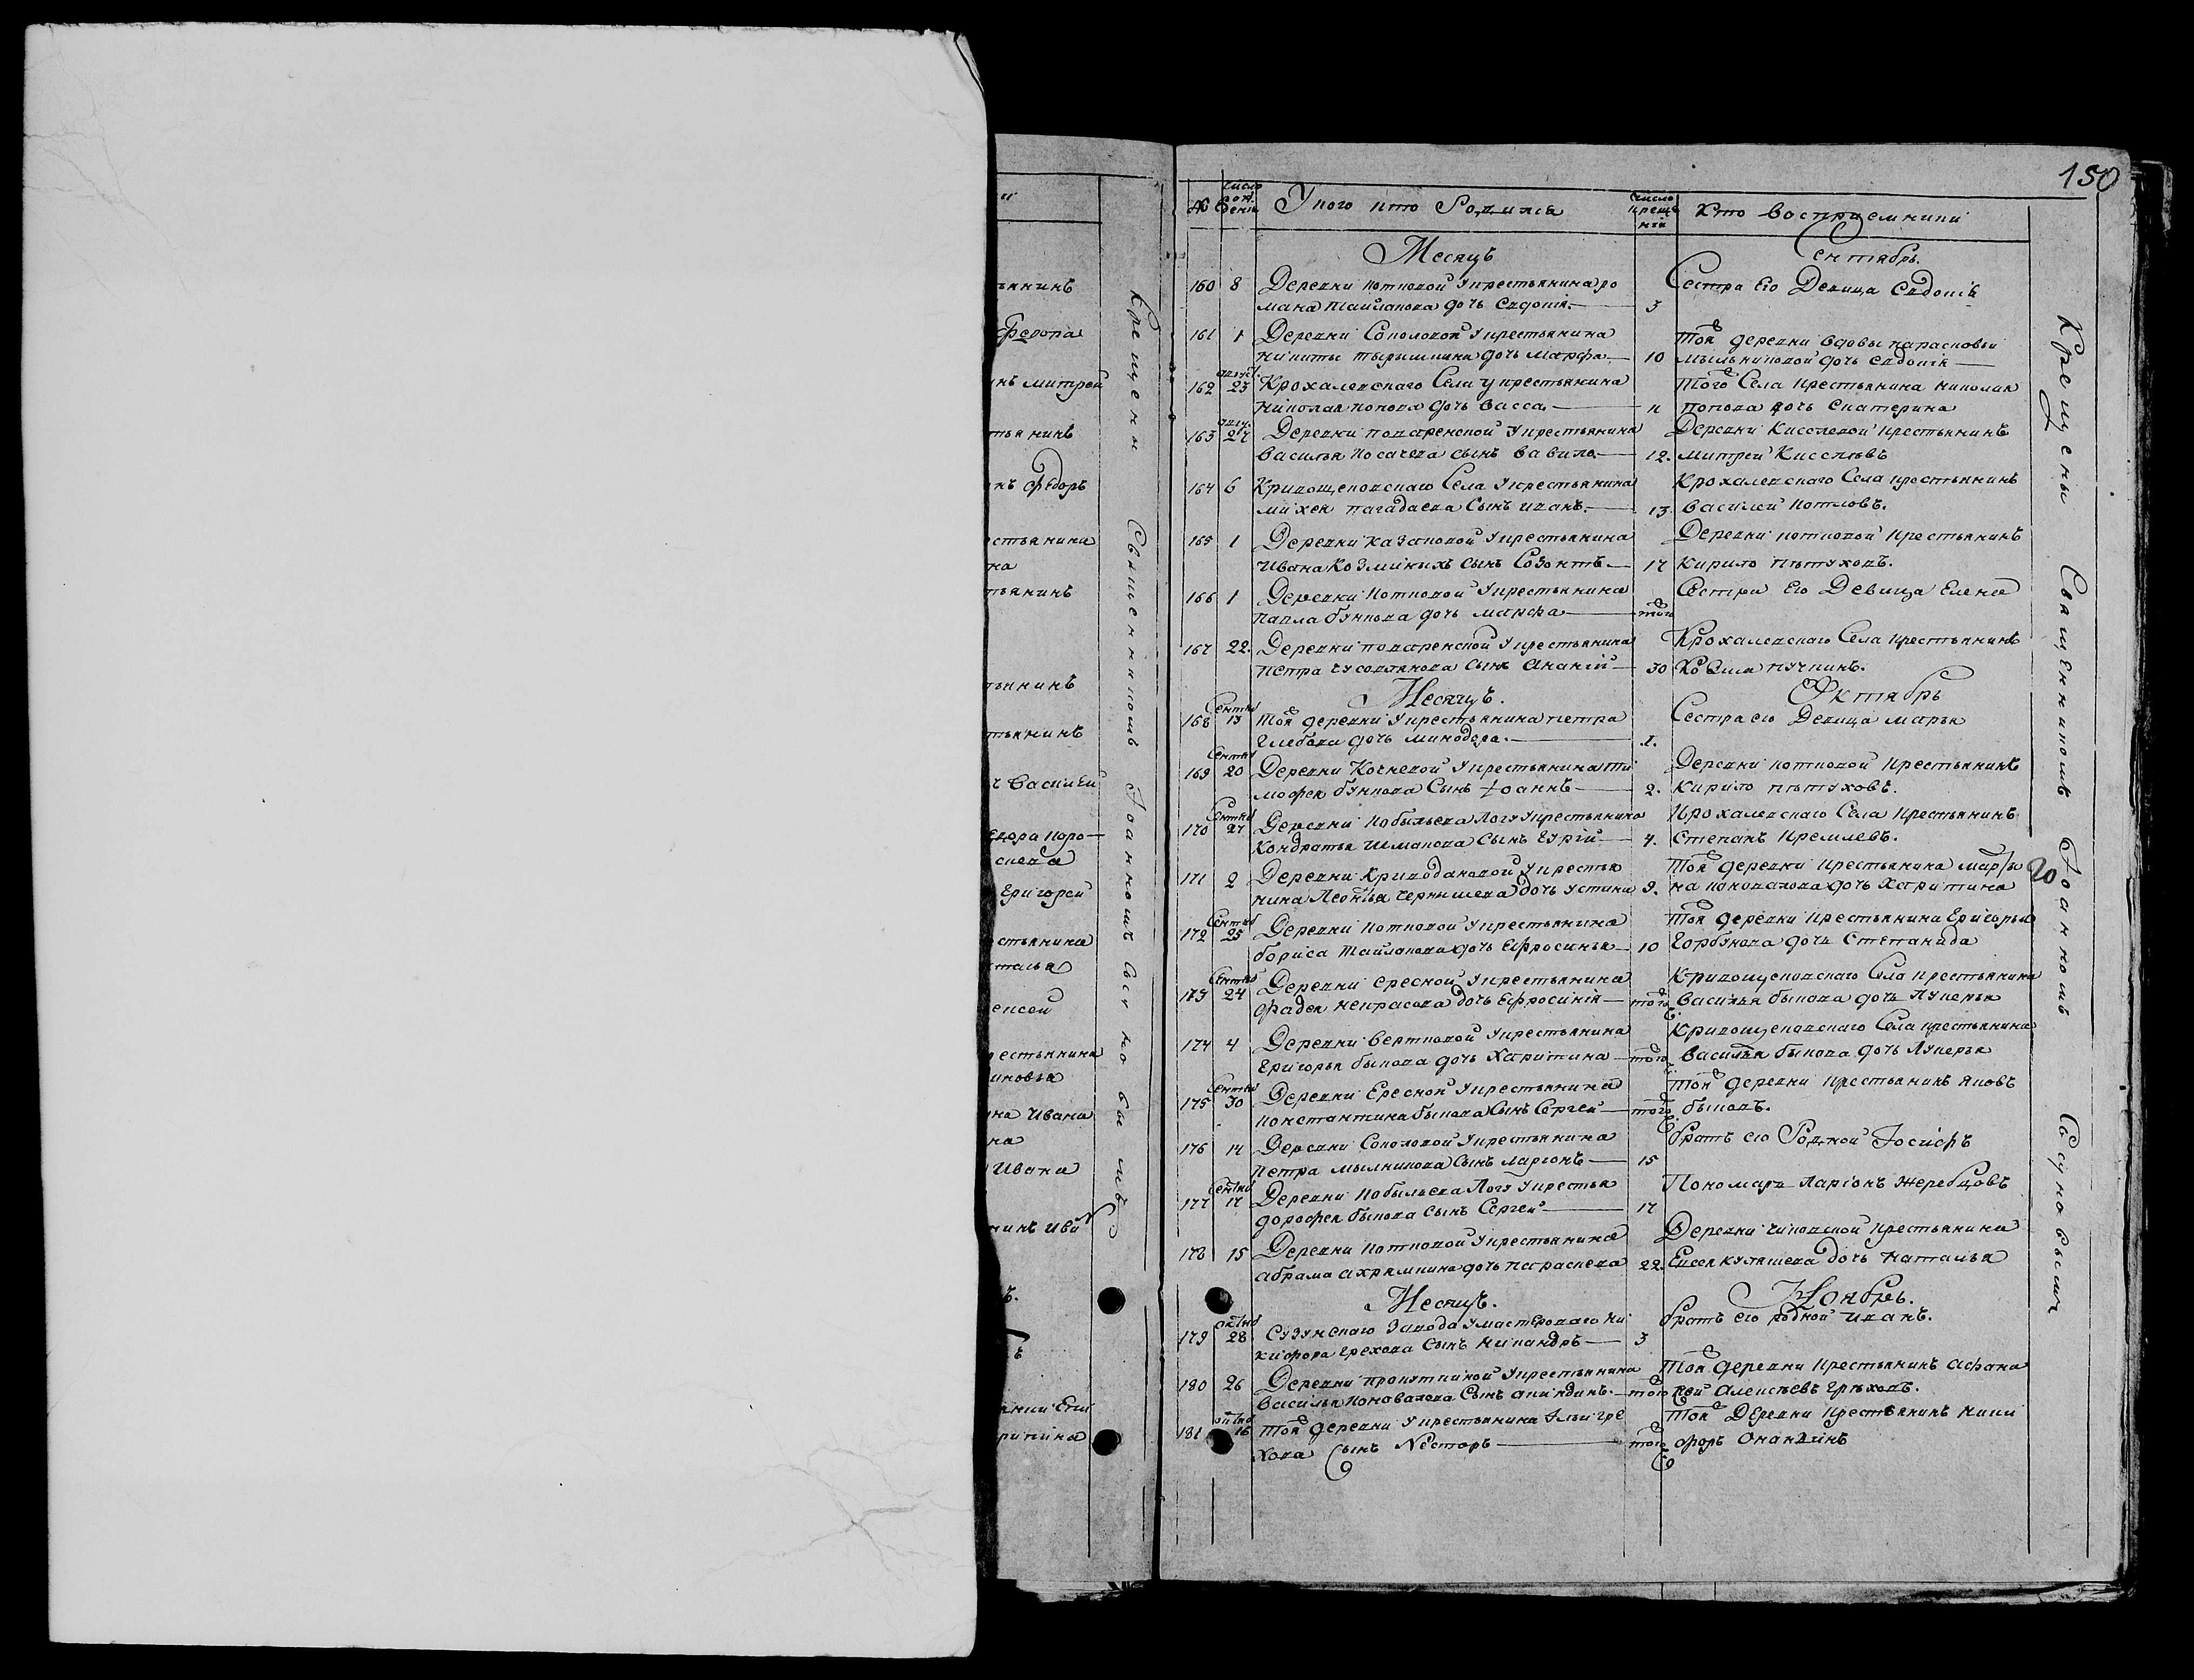 150
№
Число рождения
У кого кто Родился
Число крещения
Кто восприемники
Месяцъ
Сентябрь.
160 8 Деревни котковой у крестьянина ро
мана тайлакова дочь Евдокія. 3
Сестра Его Девица Евдокія
161 1 Деревни Соколовой у крестьянина
никиты дочь марфа 10
Той деревни вдовы парасковьи
мыльниковой дочь Евдокія
162 август. 23 Крохалевскаго Села у крестьянина
николая попова дочь васса 11
Того Села крестьянина николая
попова дочь Екатерина
163 авгу. 27 Деревни поваренской у крестьянина
василья косачева сынъ вавило 12.
Деревни Киселевой крестьянинъ
митрей Киселевъ
164 6 Кривощековскаго Села у крестьянина
михея пагадаева Сынъ иванъ. 13
Крохалевскаго Села крестьянинъ
василей котловъ.
165 1 Деревни казаковой у крестьянина
Ивана Козминыхъ сынъ Созонтъ 17
Деревни котковой крестьянинъ
Кирило пѣтуховъ.
166 1 Деревни Котковой у крестьянина
павла бункова дочь марфа того
Сестра Его Девица Елена
167 22. Деревни поваренской у крестьянина
петра чусовлянова сынъ Ананій 30
Крохалевскаго Села крестьянинъ
Козма пучкинъ.
Месяцъ.
Октябрь
168 Сентяб 13 той деревни у крестьянина петра
Глебова дочь минодора. 1.
Сестра его Девица марья
169 Сентяб 20 Деревни Кочневой у крестьянина ти
мофея бункова Сынъ Іоаннъ 2.
Деревни котковой крестьянинъ
Кирило пѣтуховъ.
170 Сентяб 27 Деревни кобыльева Логу у крестьянина
Кондратья шмакова Сынъ Гурій 4.
Крохалевскаго Села крестьянинъ
Степанъ кремлевъ.
171 2 Деревни Криводановой у крестья
нина Леонтья чернышева дочь устина 9.
той деревни крестьянина марты
на коновалова дочь Харитина
20
172 Сентяб 25 Деревни котковой у крестьянина
бориса тайлакова дочь Ефросинья 10
той деревни крестьянина Григорья
Горбунова дочь Степанида
173 Сентяб 24 Деревни ересной у крестьянина
фадея некрасова дочь Ефросинія того
Кривощековскаго Села крестьянина
василья быкова дочь лукерья
174 4 Деревни вертковой у крестьянина
Григорья быкова дочь харитина того
Кривощековскаго Села крестьянина
василья быкова дочь лукерья
175 Сентяб 30 Деревни Ересной у крестьянина
константина быкова Сынъ Сергей того
той деревни крестьянинъ яковъ
быковъ.
176 14 Деревни Соколовой у крестьянина
петра мылникова Сынъ ларионъ 15
братъ его Родной Іосифъ
177 Сентяб 17 Деревни кобыльева Логу у крестья
дорофея быкова сынъ Сергей 17
Пономарь Ларіонъ Жеребцовъ
178 15 Деревни котковой у крестьянина
абрама ахрямкина дочь параскева 22.
Деревни чиковской крестьянина
Евсея куляшева дочь наталья
Месяцъ.
Ноябрь.
179 октяб 28 Сузунскаго Завода у мастероваго ни
кифора грехова Сынъ никандръ 3
братъ его родной иванъ.
180 26 Деревни прокуткиной у крестьянина
василья Коновалова Сынъ акиндинъ. того
той деревни крестьянинъ афана
сей алексѣевъ грѣховъ.
181 октяб 16 той деревни у крестьянина Ильи гре
хова Сынъ Несторъ того
той Деревни крестьянинъ ники
форъ Ананьинъ
Крещены Священникомъ Іоанномъ Сосуновымъ
Крещены Священникомъ Іоанномъ Сосуновымъ